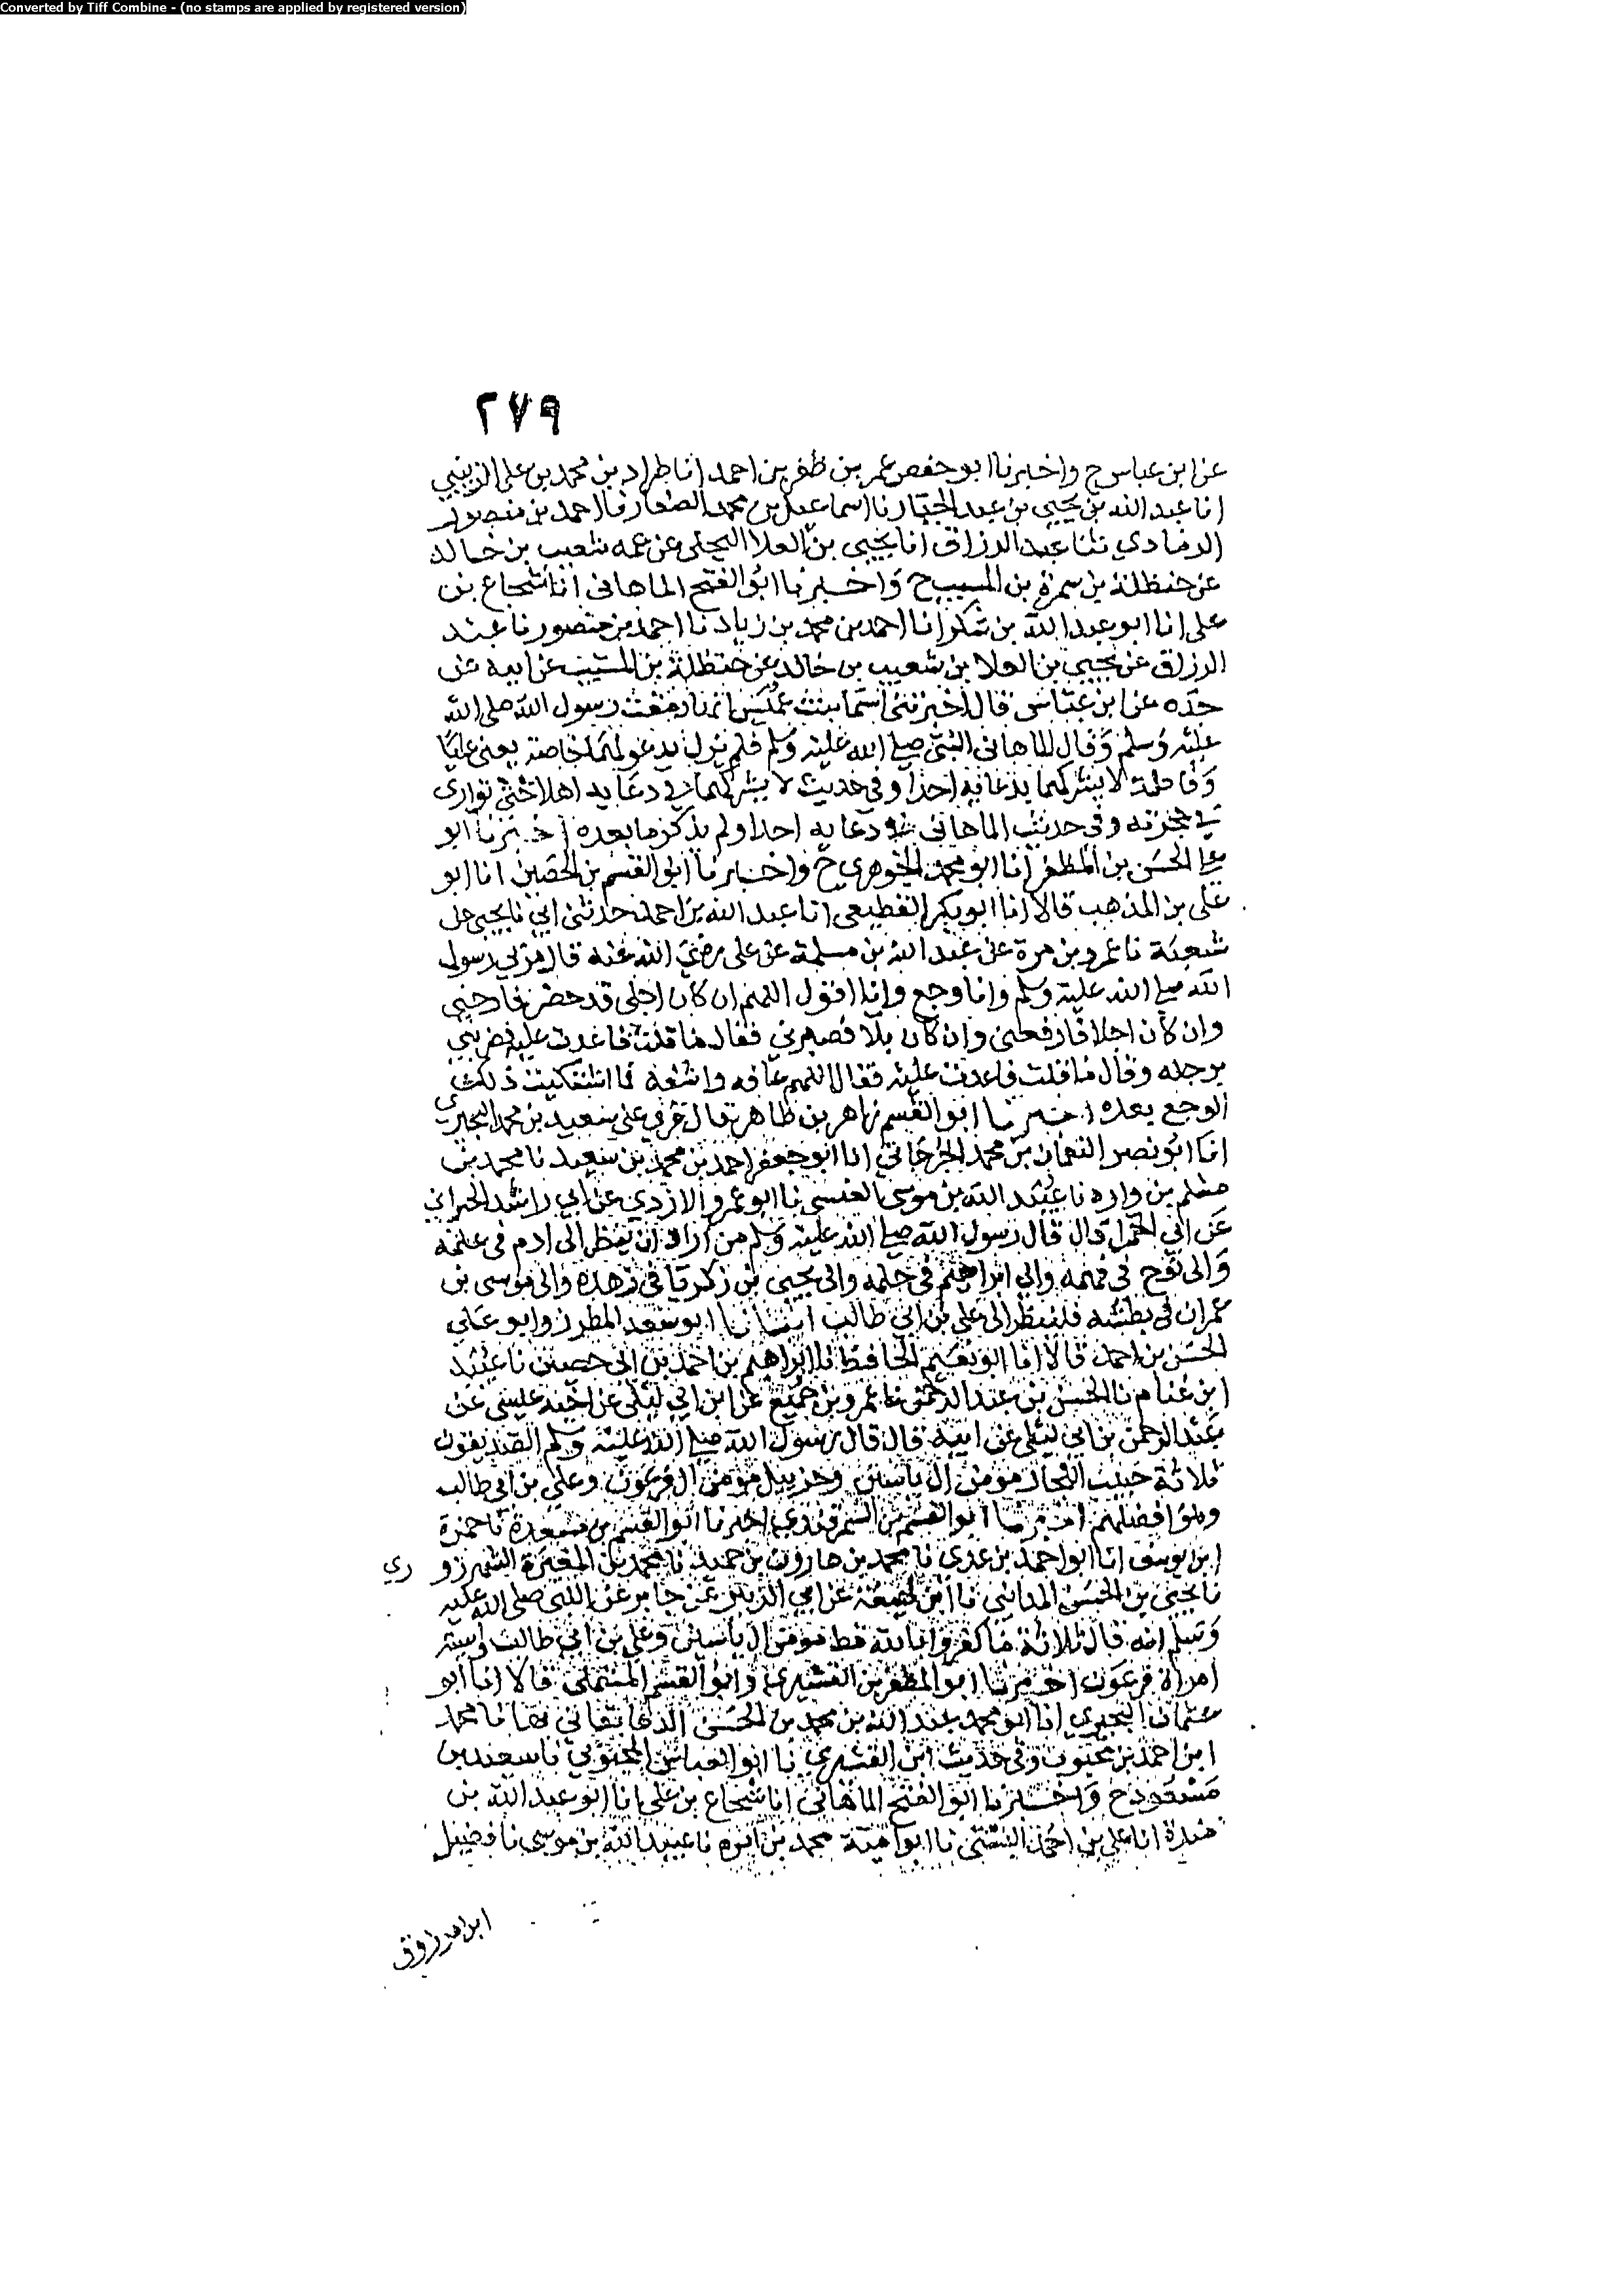 Converted by Tiff Combine - (no stamps are applied by registered version)
٢٧٩
عن ابن عباس ح واخبرنا ابو حفص عمر بن ظفر بن احمد انا طراد بن محمد بن على الزينبي
انا عبد الله بن يحيى بن عبد الجبار نا اسماعيل بن محمد الصفار نا احمد بن منصور
الرمادي نا عبد الرزاق انا يحيى بن العلا البجلى عن عمه شعيب بن خالد
عن حنظلة بن سمرة بن المسيب ح واخبرنا ابو الفتح الماهانى انا شجاع بن
على انا ابو عبد الله بن شكر انا احمد بن محمد بن زياد نا احمد بن منصور نا عبد
الرزاق عن يحيى بن العلا بن شعيب بن خالد عن حنظلة بن المسيب عن ابيه عن
جده عن ابن عباس قال اخبرتنى اسما بنت عميس انها رمقت رسول الله صلى الله
عليه وسلم وقال الماهانى النبى صلى الله عليه وسلم فلم يزل يدعو لهما خاصة يعنى عليا
وفاطمة لا يشركهما بدعايه احدا وفى حديث لا يشركهما في دعايه اهلا حتى توارى
في حجرته وفى حديث الماهانى في دعايه احدا ولم يذكر ما بعده اخبرنا ابو
على الحسن بن المظفر انا ابو محمد الجوهري ح واخبرنا ابو القسم بن الحصين انا ابو
على بن المذهب قالا انا ابو بكر القطيعى انا عبد الله بن احمد حدثنى ابى نا يحيى عن
شعبة نا عمرو بن مرة عن عبد الله بن مسلمة عن على رضى الله عنه قال مر بي رسول
الله صلى الله عليه وسلم وانا وجع وانا اقول اللهم ان كان اجلى قد حضر فارحنى
وان كان اجلا فارفعنى وان كان بلا فصبرني فقال ما قلت فاعدت عليه فضربني
برجله وقال ما قلت فاعدت عليه فقال اللهم عافه واشفه فما اشتكيت ذلك
الوجع بعده اخبرنا ابو القسم زاهر بن طاهر قال قرى على سعيد بن محمد البحيري
انا ابو نصر النعمان بن محمد الجرجاني انا ابو جعفر احمد بن محمد بن سعيد نا محمد بن
مسلم بن واره نا عبيد الله بن موسى العبسى نا ابو عمرو الازدي عن ابي راشد الحبراني
عن ابي الحمرا قال قال رسول الله صلى الله عليه وسلم من اراد ان ينظر الى ادم فى علمه
والى نوح فى فهمه والى ابراهيم فى حلمه والى يحيى بن زكريا في زهده والى موسى بن
عمران في بطشه فلينظر الى على بن ابي طالب انبانا ابو سعد المطرز وابو على
الحسن بن احمد قالا انا ابو نعيم الحافظ نا ابراهيم بن احمد بن ابى حصين نا عبيد
ابن غنام نا الحسن بن عبد الرحمن نا عمرو بن جميع عن ابن ابي ليلى عن اخيه عيسى عن
عبد الرحمن بن ابي ليلى عن ابيه قال قال رسول الله صلى الله عليه وسلم الصديقون
ثلاثة حبيب النجار مومن ال ياسين وحزبيل مومن ال فرعون وعلى بن ابي طالب
وهو افضلهم اخبرنا ابو القسم بن السمرقندي اخبرنا ابو القسم بن مسعدة نا حمزة
ابن يوسف انا ابو احمد بن عدي نا محمد بن هارون بن حميد نا محمد بن المغيرة الشهرزوري
نا يحيى بن الحسن المدائنى نا ابن لهيعة عن ابي الزبير عن جابر عن النبى صلى الله عليه
وسلم انه قال ثلاثة ما كفروا بالله قط مومن ال ياسين وعلى بن ابي طالب واسية
امراة فرعون اخبرنا ابو المظفر بن القشيري وابو القسم المستملى قالا انا ابو
عثمان البحيري انا ابو محمد عبد الله بن محمد بن الحسن بها نا محمد
ابن احمد بن محبوب وفى حديث ابن القشيري نا ابو العباس المحبوبي نا سعيد بن
مسعود ح واخبرنا ابو الفتح الماهانى انا شجاع بن على انا ابو عبد الله بن
مندة انا على بن احمد نا ابو امية محمد بن ابرهم نا عبيد الله بن موسى نا فضيل
ابن مرزوق